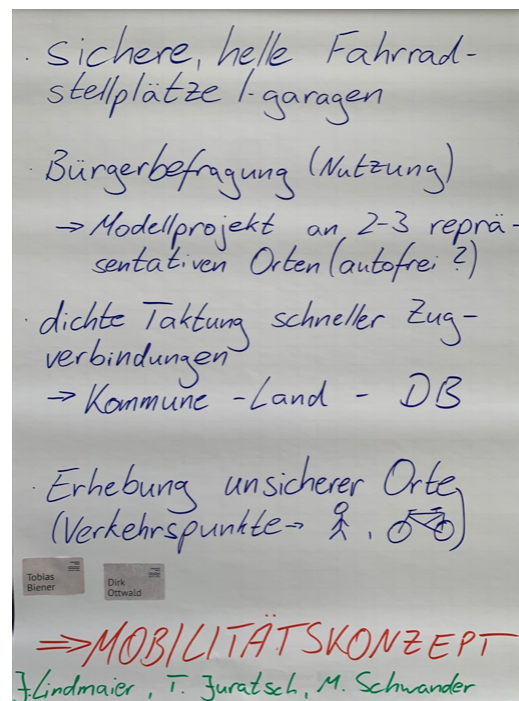 · Sichere, helle Fahrrad-
stellplätze /-garagen
· Bürgerbefragung (Nutzung)
→ Modellprojekt an 2-3 reprä-
sentativen Orten (autofrei?)
· dichte Taktung schneller Zug-
verbindungen
→ Kommune - Land - DB
· Erhebung unsicherer Orte
(Verkehrspunkte → , )
Tobias
Biener
Dirk
Ottwald
⇒ MOBILITÄTSKONZEPT
J. Lindmaier, T. Juratsch, M. Schwander